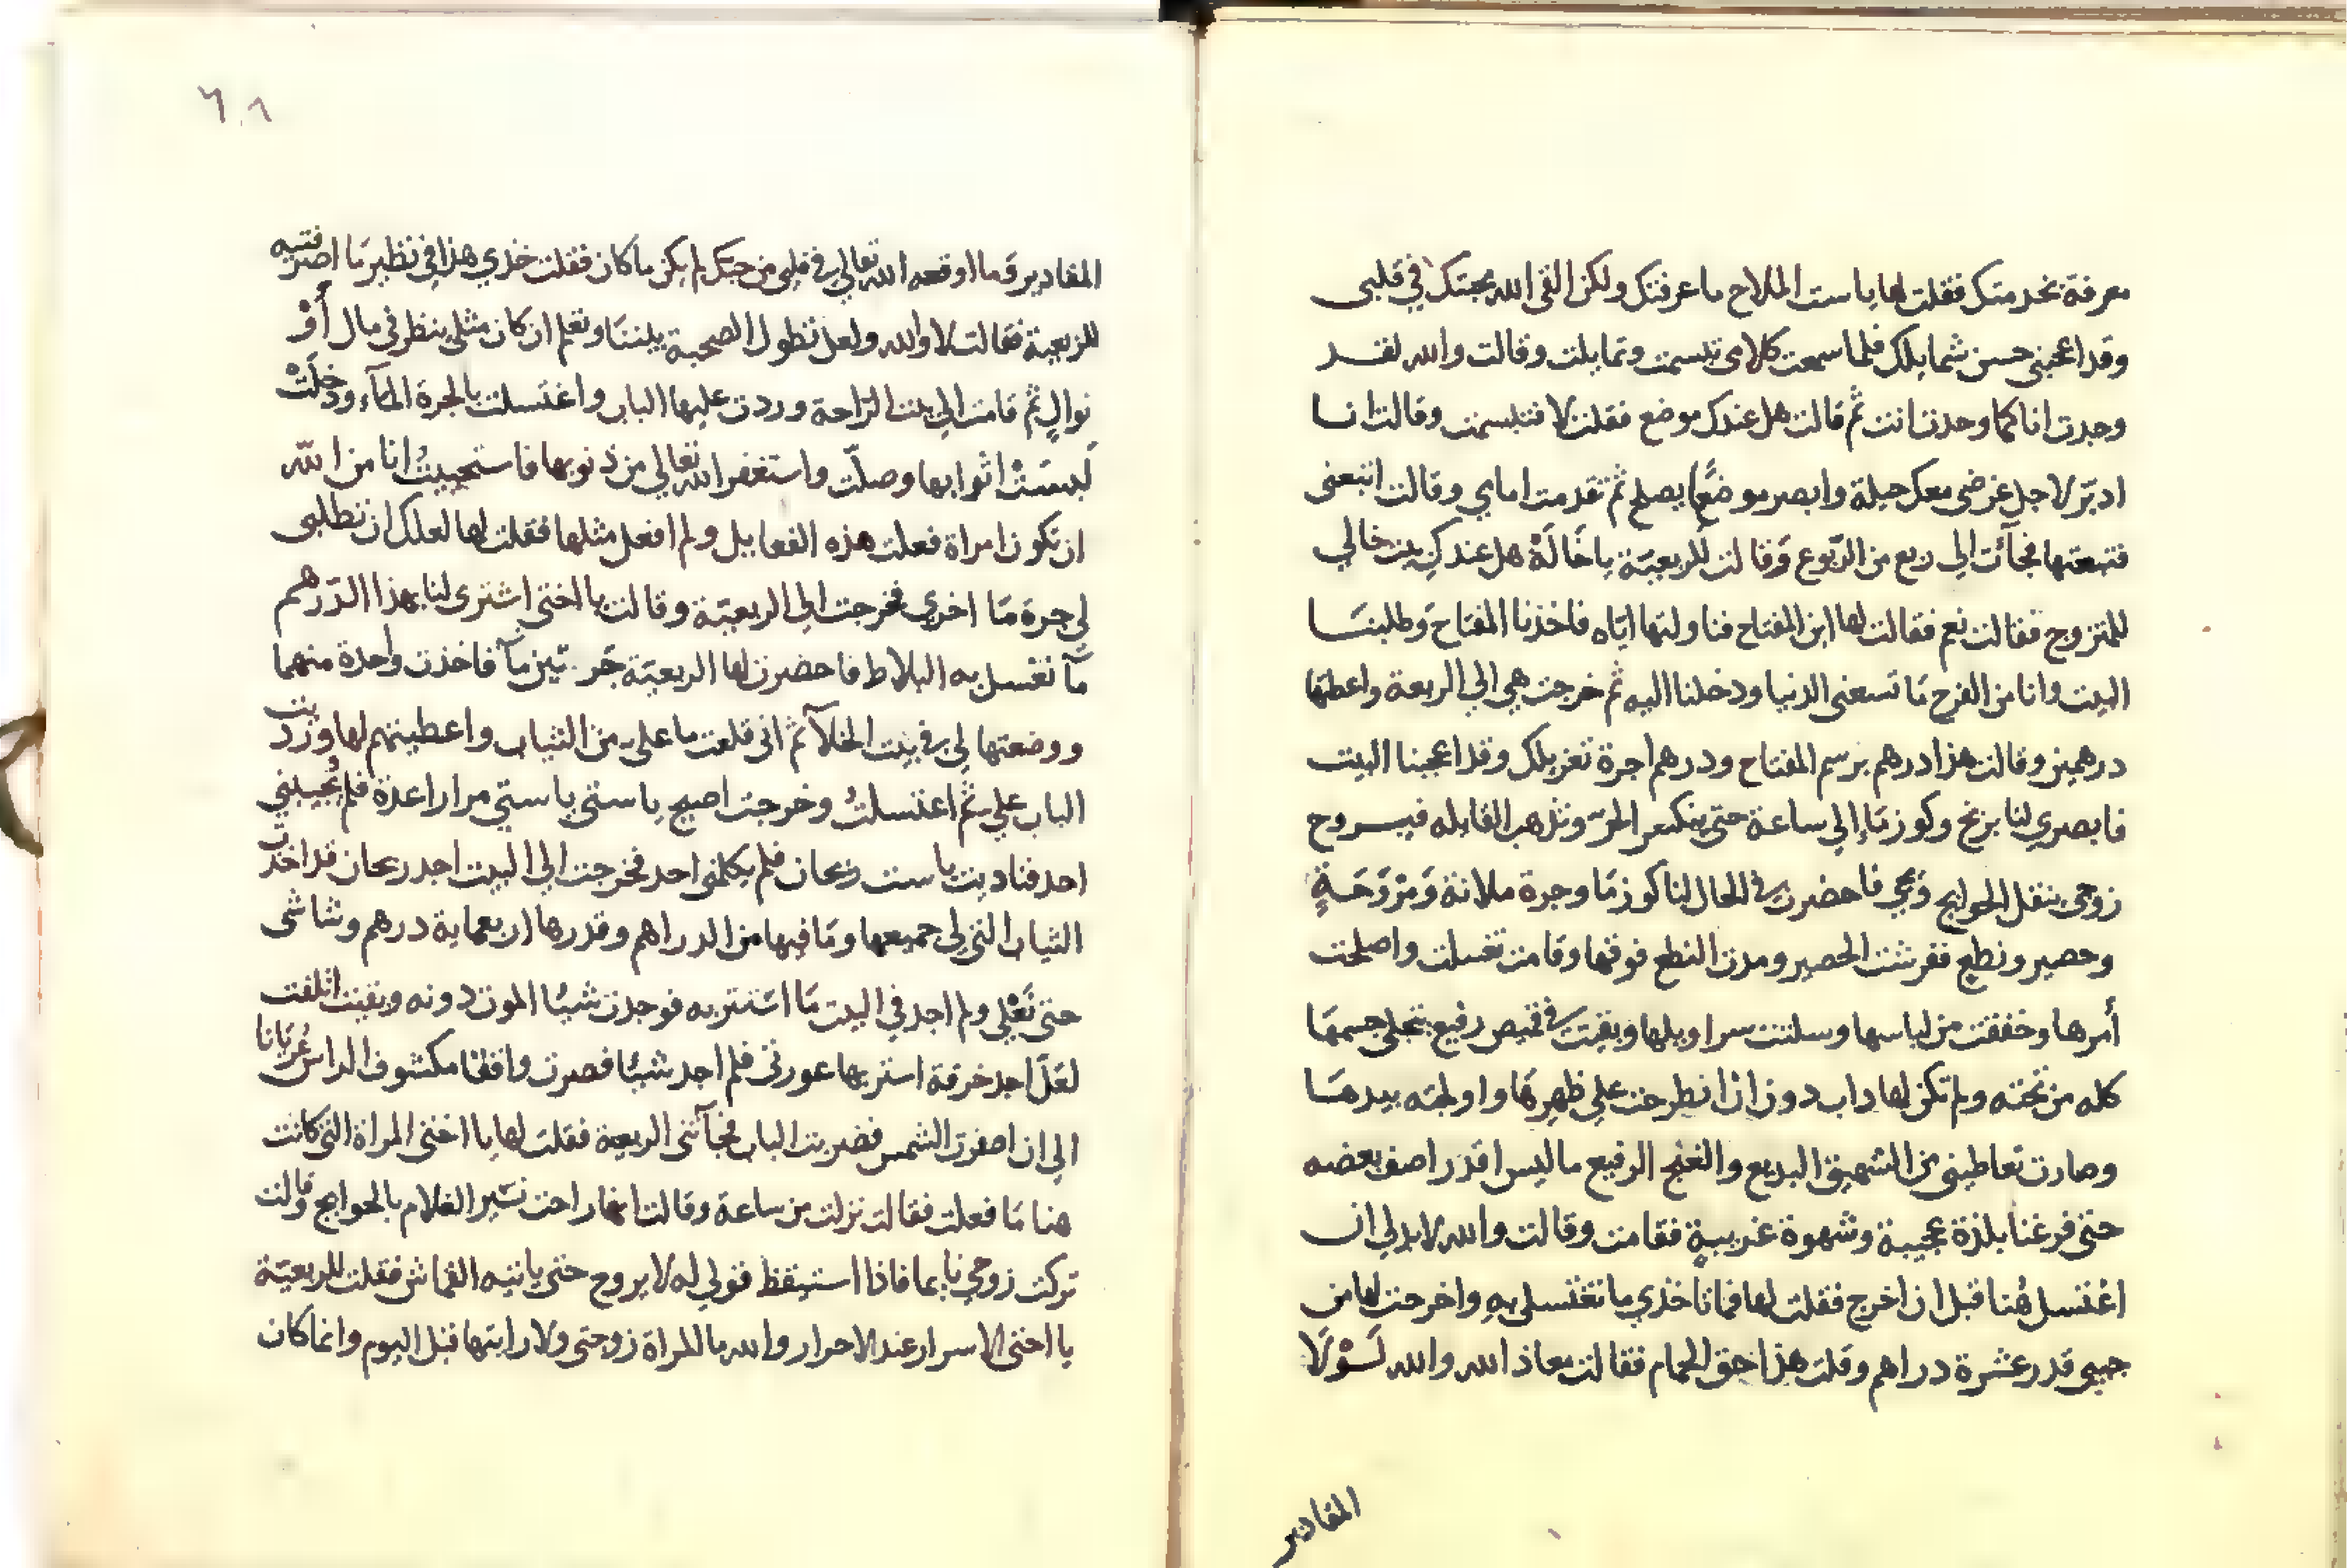 معرفة بخدمتك فقلت لها ياست الملاح ما عرفتك ولكن القى الله محبتك في قلبى
وقد اعجبنى حسن شمايلك فلما سمعت كلامى تبسمت وتمايلت وقالت والله لقد
وجدت انا كما وجدت انت ثم قالت هل عندك موضع فقلت لا فتبسمت وقالت انا
ادبّر لاجل غرضى معك حيلة وابصر موضعًا يصلح ثم تقدمت امامي وقالت اتبعنى
فتبعتها فجآئت الي ربع من الربوع وقالت للربعيّة يا خالة هل عندك بيت خالي
للمتزوج فقالت نعم فقالت لها اين المفتاح فناولتها ايّاه فاخذنا المفتاح وطلبنا
البيت وانا من الفرح ما تسعنى الدنيا ودخلنا اليه ثم خرجت هي الي الربعة واعطتها
درهمين وقالت هذا درهم برسم المفتاح ودرهم اجرة تعزيلك وقد اعجبنا البيت
فابصري لنا بزبخ وكوز مآ الي ساعة حتى ينكسر الحرّ وتذهب القايله فيروح
زوجى ينقل الحوايج ويجى فاحضرت في الحال لنا كوز ما وجرة ملانة ومروحةٍ
وحصير ونطع ففرشت الحصير ومدت النطع فوقها وقامت تغسلت واصلحت
أمرها وخففت من لباسها وسلتت سراويلها وبقيت في قميص رفيع ينجلى جسمها
كله من تحته ولم تكن لها داب دون ان انطرحت علي ظهرها واولجته بيدها
وصارت تعاطينى من الشهيق البديع والغنج الرفيع ما ليس اقدر اصف بعضه
حتى فرغنا بلذة عجيبة وشهوة غريبةٍ فقامت وقالت والله لابد لي ان
اغتسل هُنا قبل ان اخرج فقلت لها فماتا خذي ما تغتسلى به واخرجت لها من
جيبى قدر عشرة دراهم وقلت هذا حق الحمام فقالت معاذ الله والله لَوْلَا
المقادير
٦٠٨
المقادير وما اوقعه الله تعالي في قلبى من حبك لم يكن ما كان فقلت خذي هذا في نظير ما اصرفتيه
للربعية فقالت لا والله ولعل تطول الصحبة بيننا وتعلم ان كان مثلى ينظر في مال أَوْ
نوالٍ ثم قامت الي بيت الراحة وردت عليها الباب واغتسلت بالجرة المآء ودخلتْ
لَبسَتْ اثوابها وصلّت واستغفر الله تعالي من ذنوبها فاستحييتُ انا من الله
ان تكون امراة فعلت هذه الفعايل ولم افعل مثلها فقلت لها لعلك ان تطلبى
لي جرة مَا اخرى فخرجت الي الربعيّة وقالت يا اختى اشترى لنا بهذا الدّرهم
مآ نغسل به البلاط فاحضرت لها الربعيّة جرتين مآ فاخذت واحدة منهما
ووضعتها لي في بيت الخلآ ثم انى قلعت ما علي من الثياب واعطيتهم لها وردّيت
الباب علي ثم اغتسلتُ وخرجت اصيح يا ستى يا ستي مرارا عدة فلم يُجيبني
احد فناديت يا ست ريحان فلم يكلمنى احد فخرجت الي البيت اجد ريحان قد اخذت
الثياب التي لي جميعها وما فيها من الدراهم وقدرها اربعماية درهم وشاشى
حتى نَعْلي ولم اجد في البيت مَا استتر به فوجدت شيئًا الموت دونه وبقيت اتلفت
لعَلّ اجد خرقة استر بها عورتى فلم اجد شيئًا فصرت واقفًا مكشوف الراس عُريَانا
الي ان اصفرت الشمس فضربت الباب فجآئتنى الربعية فقلت لها يا اختى المراة التي كانت
هنا مَا فعلت فقالت نزلت من ساعة وقالت انها راحت تسّير الغلام بالحوايج وقالت
تركت زوجي نايما فاذا استيقظ قولي له لا يروح حتى ياتيه القماش فقلت للربعيّة
يا اختى الاسرار عند الاحرار والله ما المراة زوجتى ولا رايتها قبل اليوم وانما كان